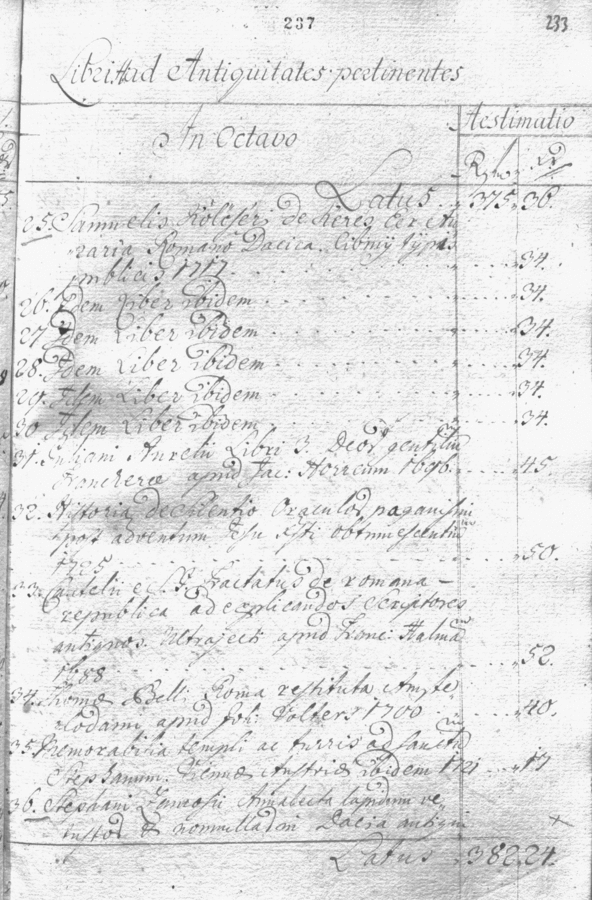 237
233
Libri ad Antiquitates pertinentes
In Octavo
Aestimatio
Latus 375. 36.
25. Samuelis Köleseri de Keres Eer Au
raria Romano Dacica. Cibinij typis
publicis 1717. 34.
26. Idem Liber ibidem 34.
27. Idem Liber ibidem 34.
28. Idem Liber ibidem 34.
29. Idem Liber ibidem 34.
30. Idem Liber ibidem 34.
31. Juliani Aurelii Libri 3. Deor gentilium
apud Jac: Horreum 1696. 45.
32. Historia de silentio Oraculor paganismi
post adventum Jesu Xsti obtmuescentium
1725 50.
33. Cantelii e S. J. Tractatus de romana
republica ad explicandos Scriptores
antiquos. Ultrajecti apud Franc: Halmam
1688 52.
34. Thomæ Belli Roma restituta Amste
lodami apud Joh: Wolters 1700 40.
35. Memorabilia templi ac turris ad Sanctum
Stephanum. Viennæ Austriæ ibidem 1721 17
36. Stephani Zamosii Analecta lapidum ve
tustor & nonnulla in Dacia antiqui
Latus 382. 24.